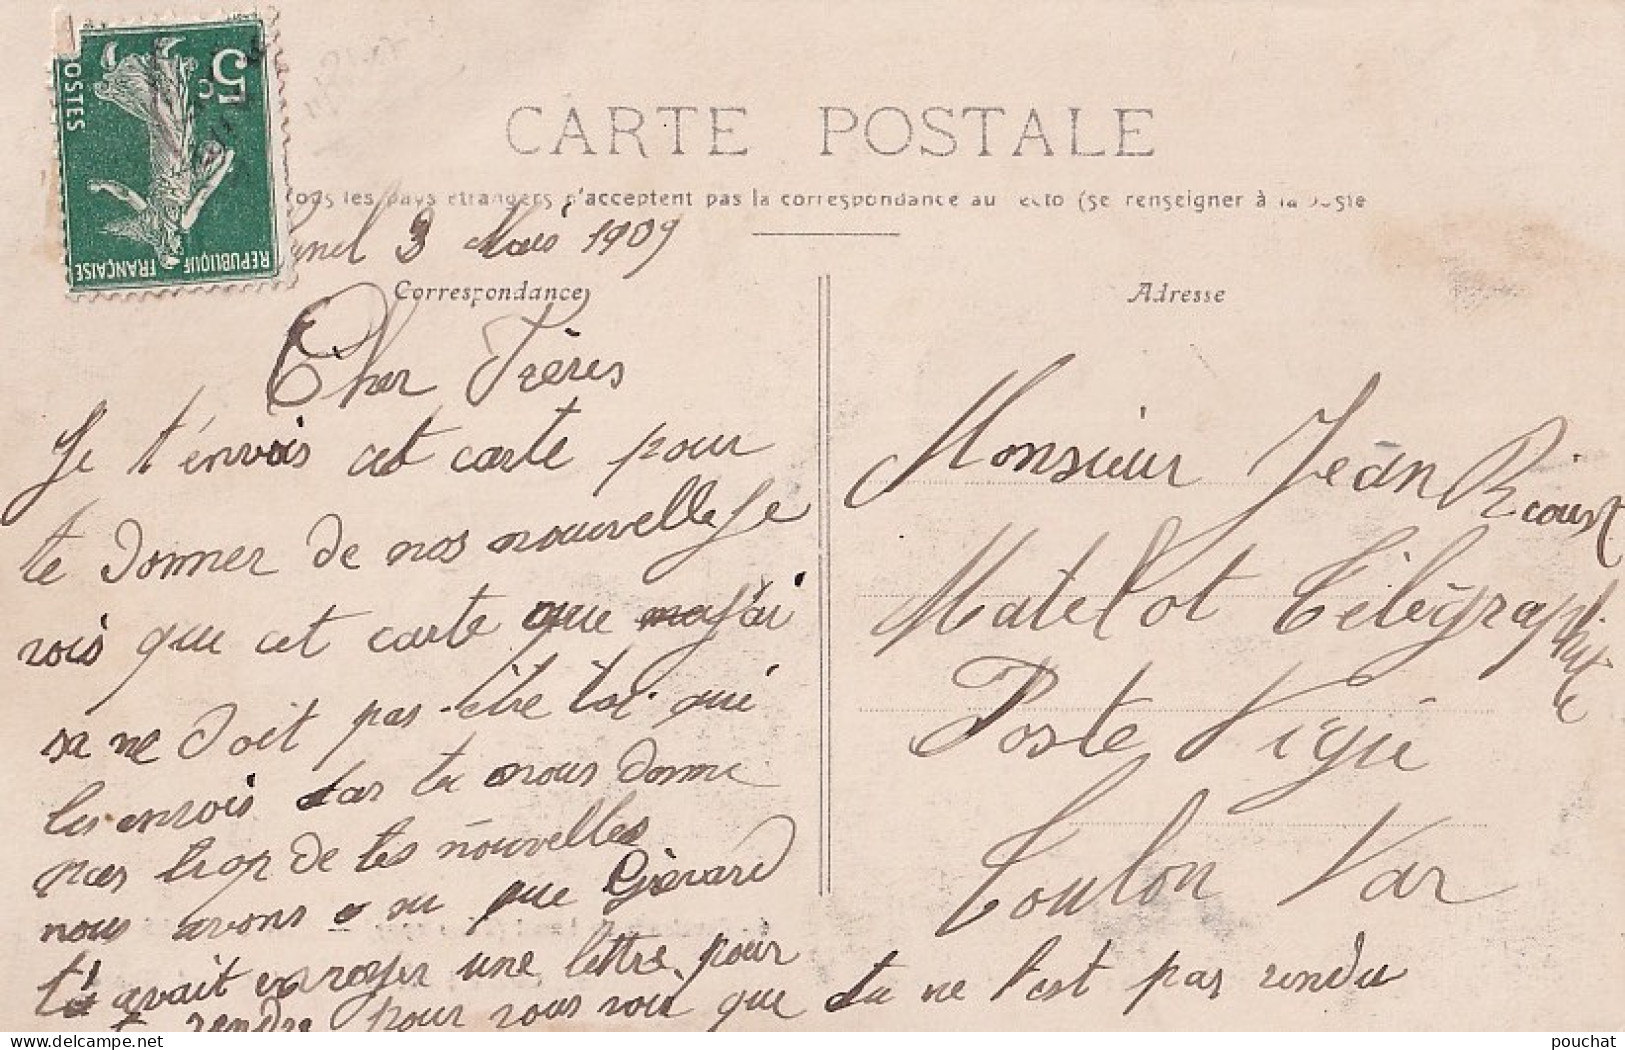 5c
POSTES
REPUBLIQUE FRANÇAISE
CARTE POSTALE
les pays étrangers n'acceptent pas la correspondance au recto (se renseigner à la Poste
3 Mais 1909
Correspondance
Cher Frères
Je t'envois cet carte pour
te donner de nos nouvelles Je
vois que cet carte que j'ai
sa ne doit pas être toi qui
les envois car tu nous donne
pas trop de tes nouvelles
nous avons vu que Gièrard
t'avait envoyer une lettre pour
rendre pour vous voir que tu ne l'est pas rendu
Adresse
Monsieur Jean Ricoust
Matelot Télégraphiste
Poste Vigie
Toulon Var
pouchat